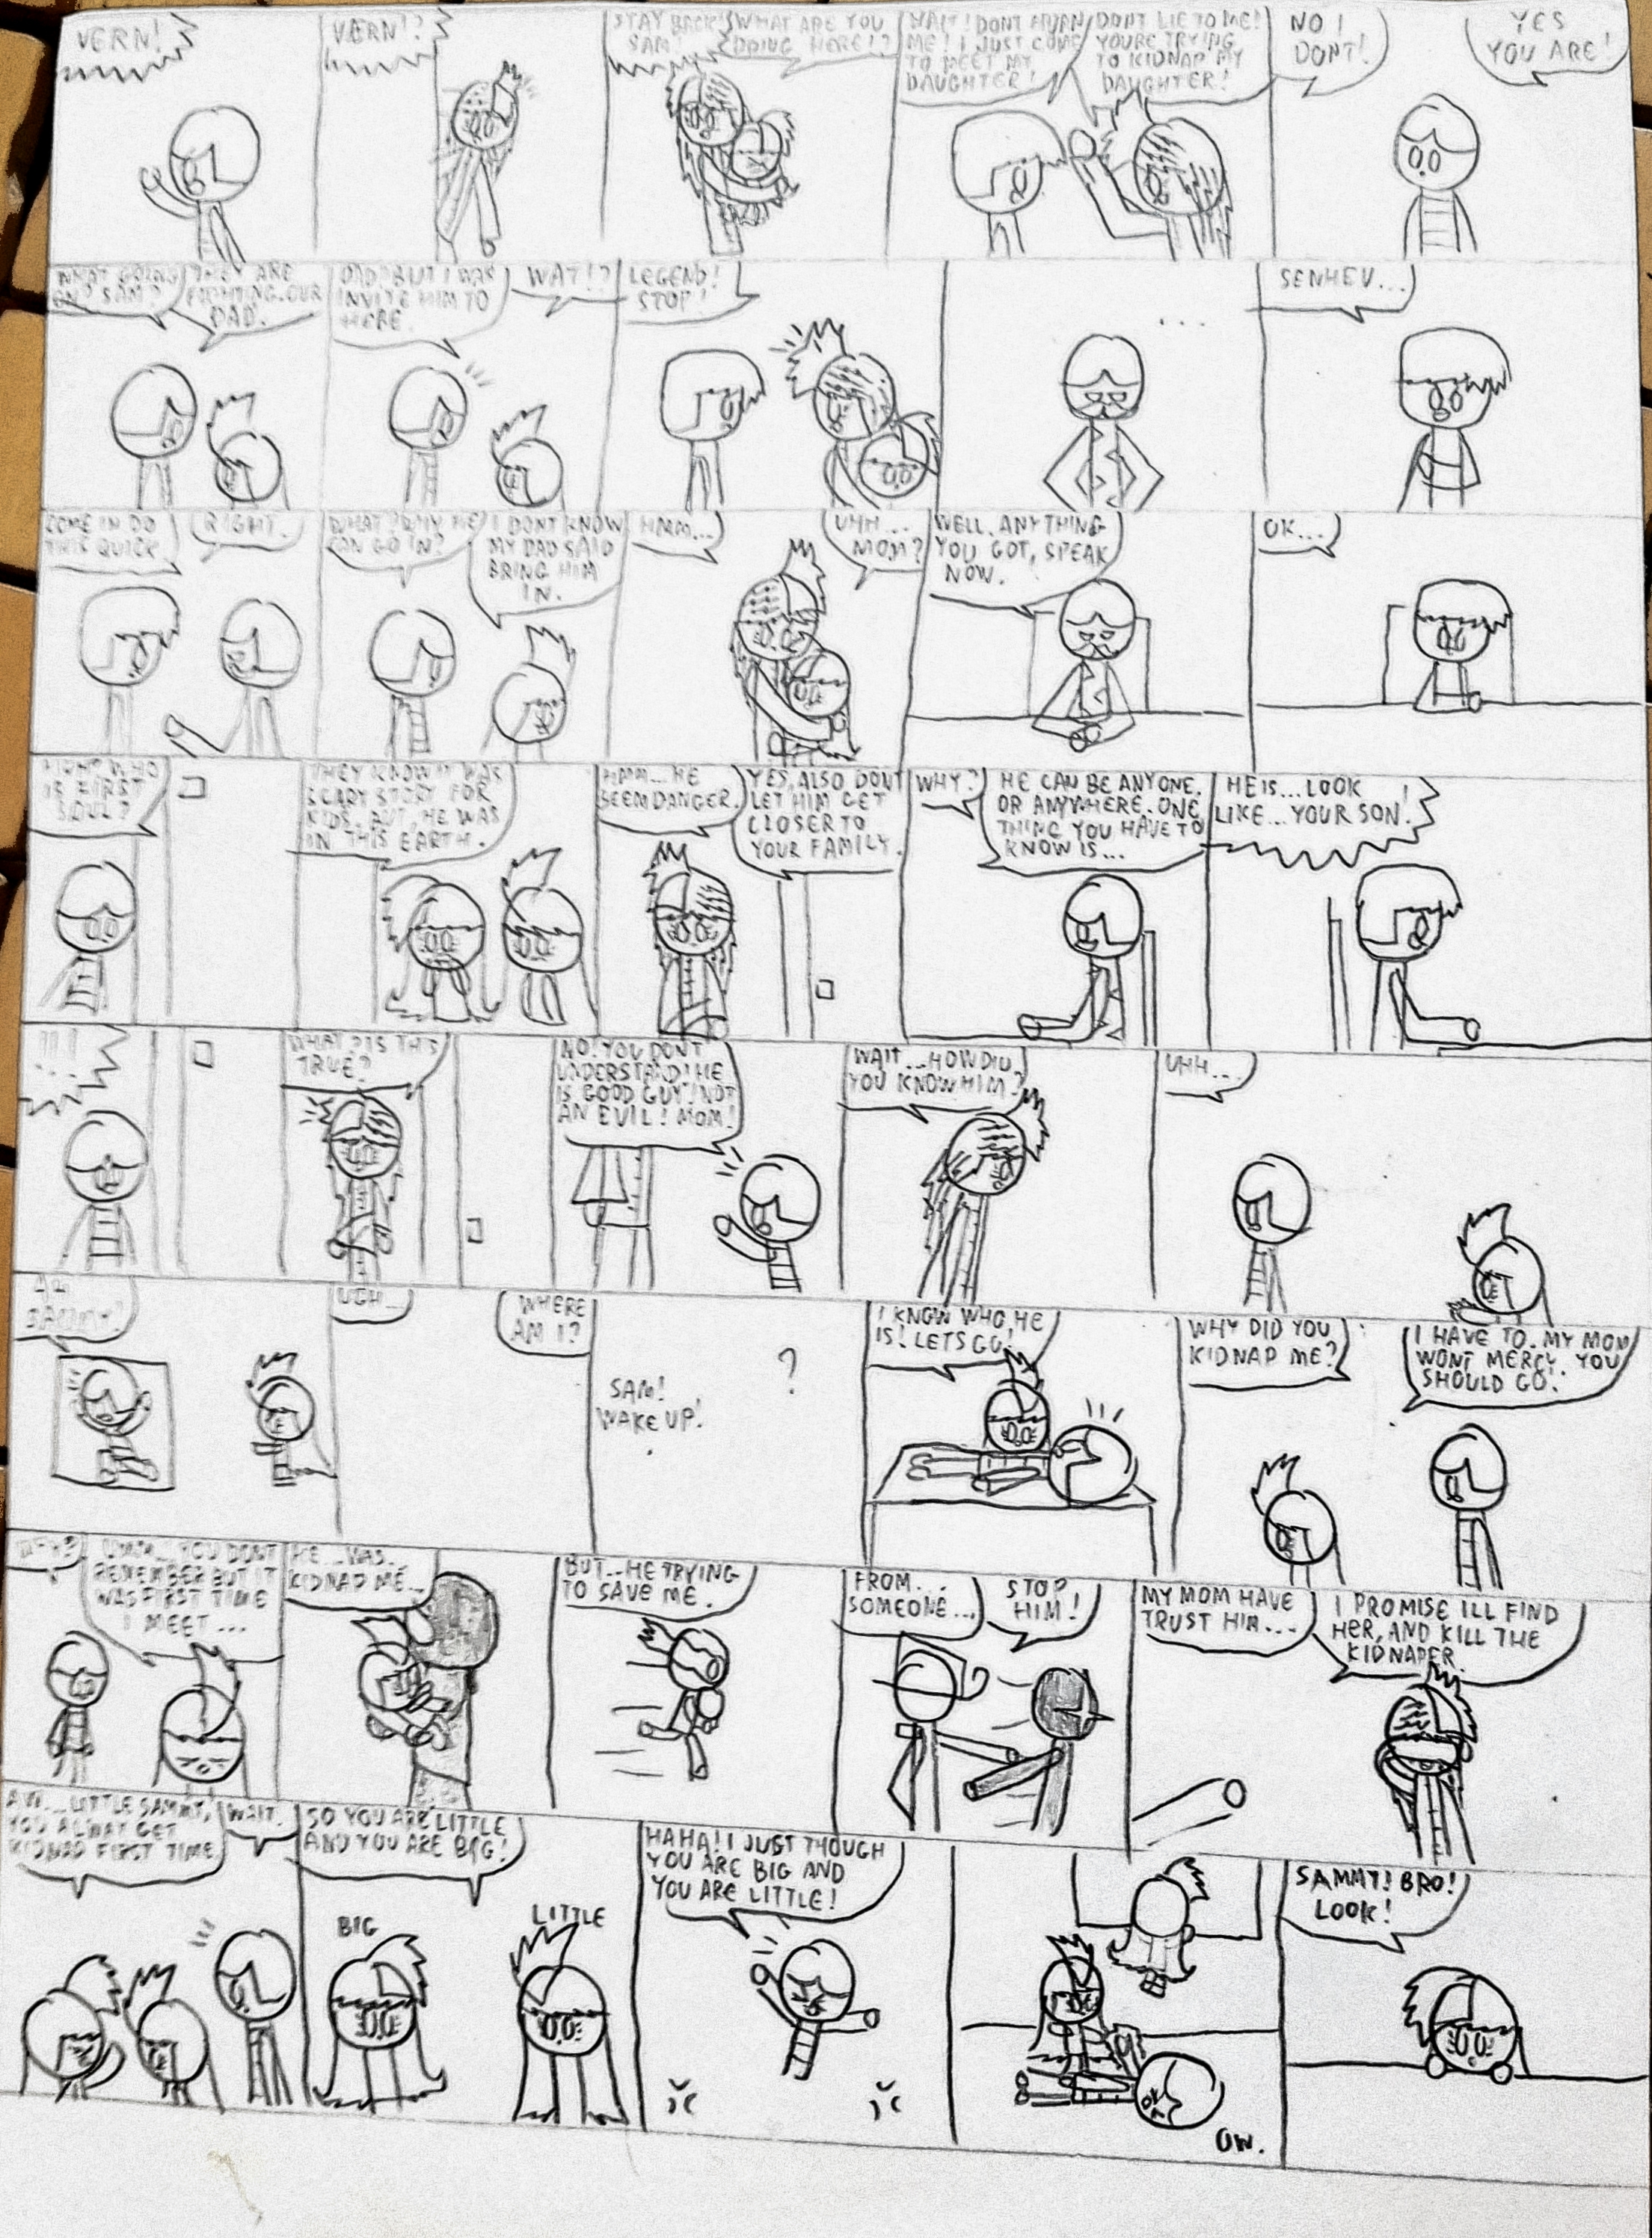 VERN!
VERN!?
STAY BACK!
SAM!
WHAT ARE YOU
DOING HERE!?
WAIT! DONT
ME! I JUST COME
TO MEET MY
DAUGHTER!
DONT LIE TO ME!
YOURE TRYING
TO KIDNAP MY
DAUGHTER!
NO I
DONT!
YES
YOU ARE!
WHAT GOING
ON? SAM?
THEY ARE
FIGHTING. OUR
DAD.
DAD? BUT I WAS
INVITE HIM TO
HERE.
WAT!?
LEGEND!
STOP!
...
SENHEV...
COME IN DO
THIS QUICK.
RIGHT.
WHAT? WHY HE
CAN GO IN?
I DONT KNOW
MY DAD SAID
BRING HIM
IN.
HMM...
UHH...
MOM?
WELL. ANYTHING
YOU GOT, SPEAK
NOW.
OK...
WHO
IS FIRST
SOUL?
THEY KNOW IT WAS
SCARY STORY FOR
KIDS. BUT, HE WAS
IN THIS EARTH.
HMM... HE
SEEM DANGER.
YES, ALSO DONT
LET HIM GET
CLOSER TO
YOUR FAMILY.
WHY?
HE CAN BE ANYONE.
OR ANYWHERE. ONE
THING YOU HAVE TO
KNOW IS...
HE IS... LOOK
LIKE... YOUR SON!
!!!
WHAT? IS THIS
TRUE?
NO! YOU DONT
UNDERSTAND! HE
IS GOOD GUY! NOT
AN EVIL! MOM!
WAIT... HOW DID
YOU KNOW HIM?
UHH...
SAMMY?
UGH...
WHERE
AM I?
SAM!
WAKE UP!
?
I KNOW WHO HE
IS! LETS GO!
WHY DID YOU
KIDNAP ME?
I HAVE TO. MY MOM
WONT MERCY. YOU
SHOULD GO!
UMM... YOU DONT
REMEMBER BUT IT
WAS FIRST TIME
I MEET...
HE... WAS..
KIDNAP ME...
BUT... HE TRYING
TO SAVE ME.
FROM...
SOMEONE...
STOP
HIM!
MY MOM HAVE
TRUST HIM...
I PROMISE ILL FIND
HER, AND KILL THE
KIDNAPER.
AW... LITTLE SAMMY,
YOU ALWAY GET
KIDNAP FIRST TIME.
WAIT.
SO YOU ARE LITTLE
AND YOU ARE BIG!
BIG
LITTLE
HAHA! I JUST THOUGH
YOU ARE BIG AND
YOU ARE LITTLE!
OW.
SAMMY! BRO!
LOOK!